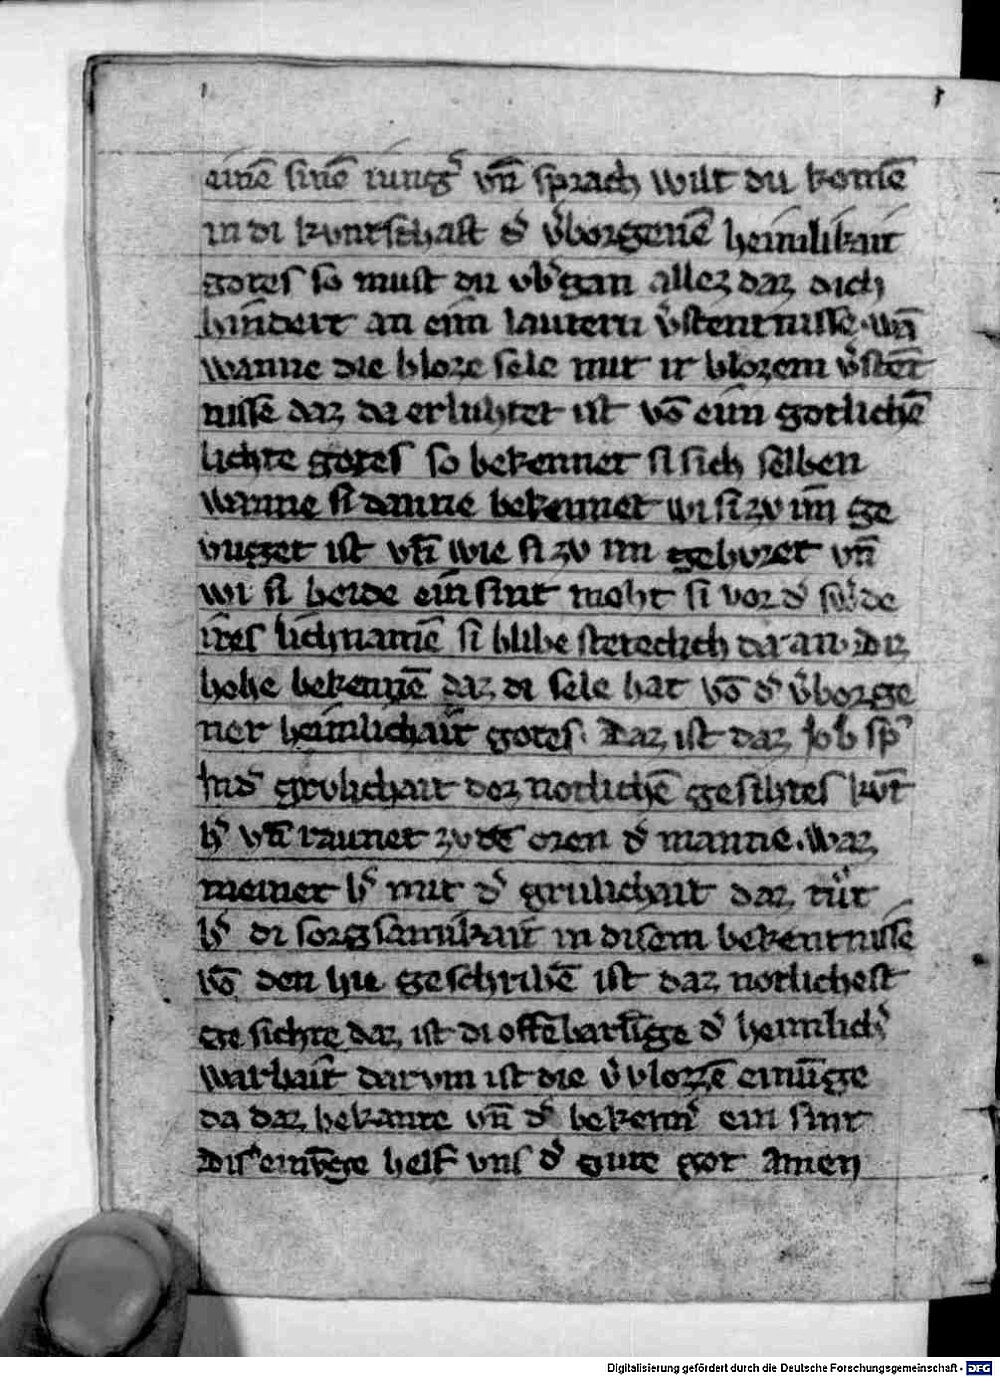 einē sinē iung͛ vn̄ sprach wilt du komē
in di kvntschaft d͛ v͛borgenē heimlikait
gotes so must du vb͛gan allez daz dich
hindert an eim lautern v͛stentnisse. wā
wanne die bloze sele mit ir blozem v͛stēt
nisse daz da erluhtet ist vō eim gotlichē
lichte gotes so bekennet si sich selben
wanne si danne bekennet wi si zv im̄ ge
vuget ist vn̄ wie si zv im gehoret vn̄
wi si beide ein sint moht si vor d͛ de
ires lichnamē si blibe steteclich dar an. Diz
hohe bekennē daz di sele hat vō d͛ v͛borge
ner heimlichait gotes. Daz ist daz Job sp͛
In d͛ grvlichait dez notlichē gesihtes kvm̄t
h͛ vn̄ raunet zv dē oren d͛ manne. Waz
meinet h͛ mit d͛ grulichait daz tut
h͛ di sorgsamikait in disem bekentnisse
vō den hie geschribē ist daz notlichest
gesichte daz ist di offēbarūge d͛ heimlich͛
warhait darvm ist die v͛vlozzē einūge
da daz bekante vn̄ d͛ bekenn͛ ein sint
Dis͛ einvͤge helf vns d͛ gute got Amen
Digitalisierung gefördert durch die Deutsche Forschungsgemeinschaft - DFG